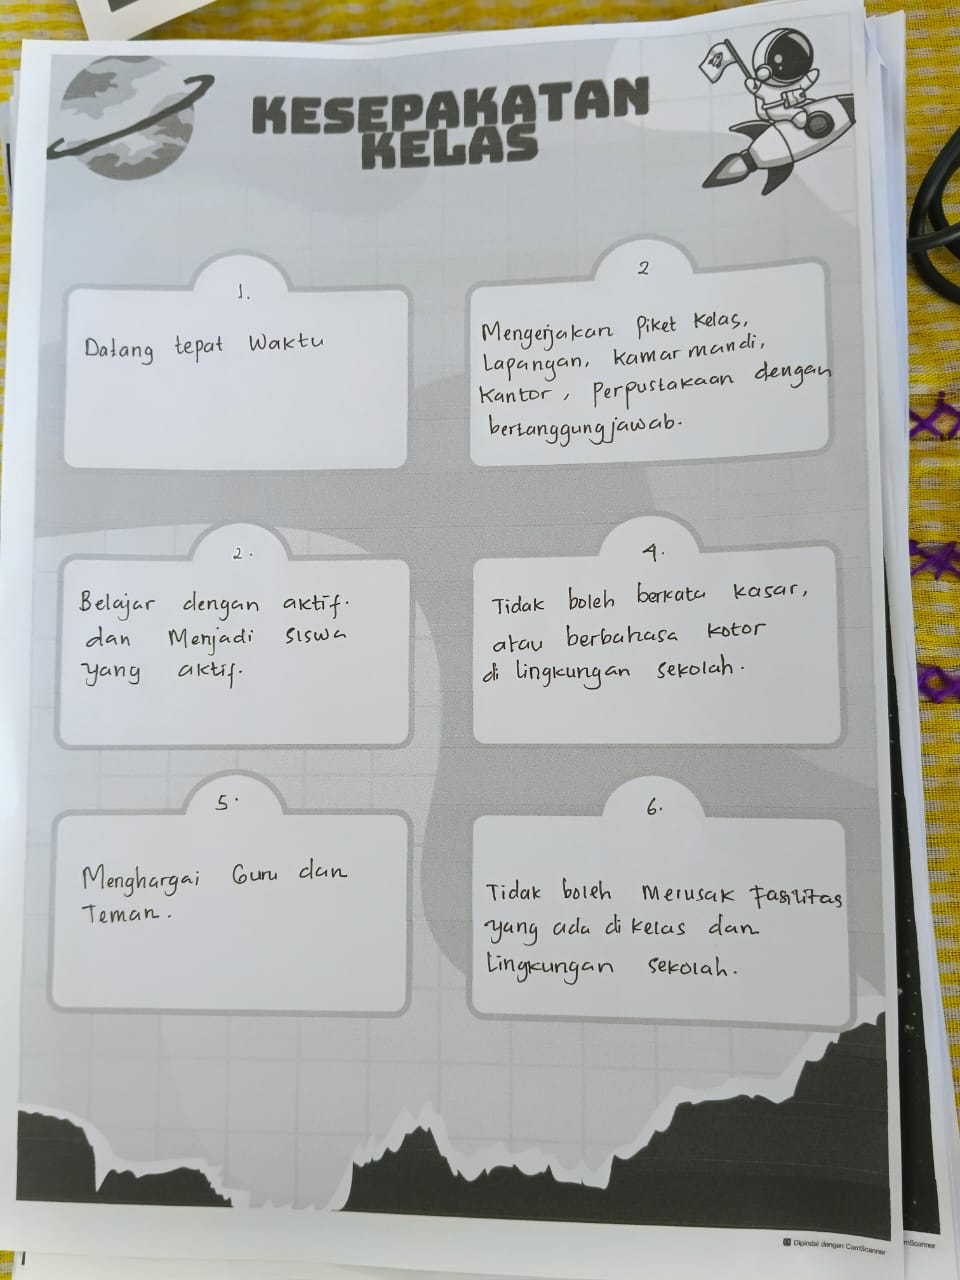 KESEPAKATAN
KELAS
1.
Datang tepat Waktu
2
Mengerjakan Piket Kelas,
Lapangan, kamar mandi,
Kantor, Perpustakaan dengan
bertanggung jawab.
2.
Belajar dengan aktif.
dan Menjadi Siswa
yang aktif.
4.
Tidak boleh berkata kasar,
atau berbahasa kotor
di lingkungan sekolah.
5.
Menghargai Guru dan
Teman.
6.
Tidak boleh Merusak Fasilitas
yang ada di kelas dan
Lingkungan sekolah.
Dipindai dengan CamScanner
mScanner